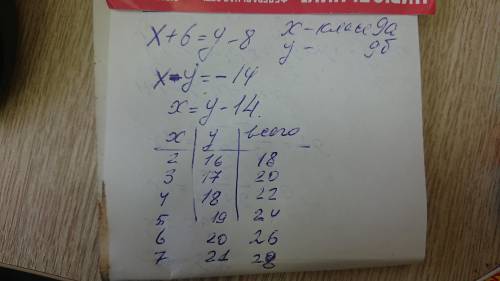 x+6=y-8 x-класс 9а
y- 9б
x-y=-14
x=y-14.
x y всего
2 16 18
3 17 20
4 18 22
5 19 24
6 20 26
7 21 28